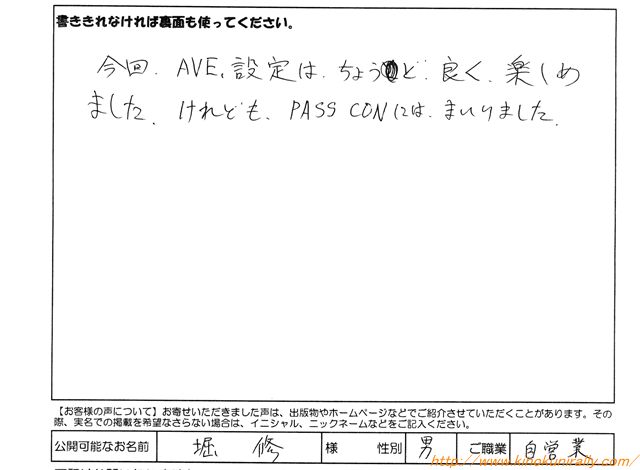 書ききれなければ裏面も使ってください。
今回、AVE.設定は、ちょうど 良く、楽しめ
ました。けれども、PASS CONには、まいりました。
【お客様の声について】お寄せいただきました声は、出版物やホームページなどでご紹介させていただくことがあります。その
際、実名での掲載を希望なさらない場合は、イニシャル、ニックネームなどをご記入ください。
公開可能なお名前 堀 修 様 性別 男 ご職業 自営業
http://www.kinokunirally.com